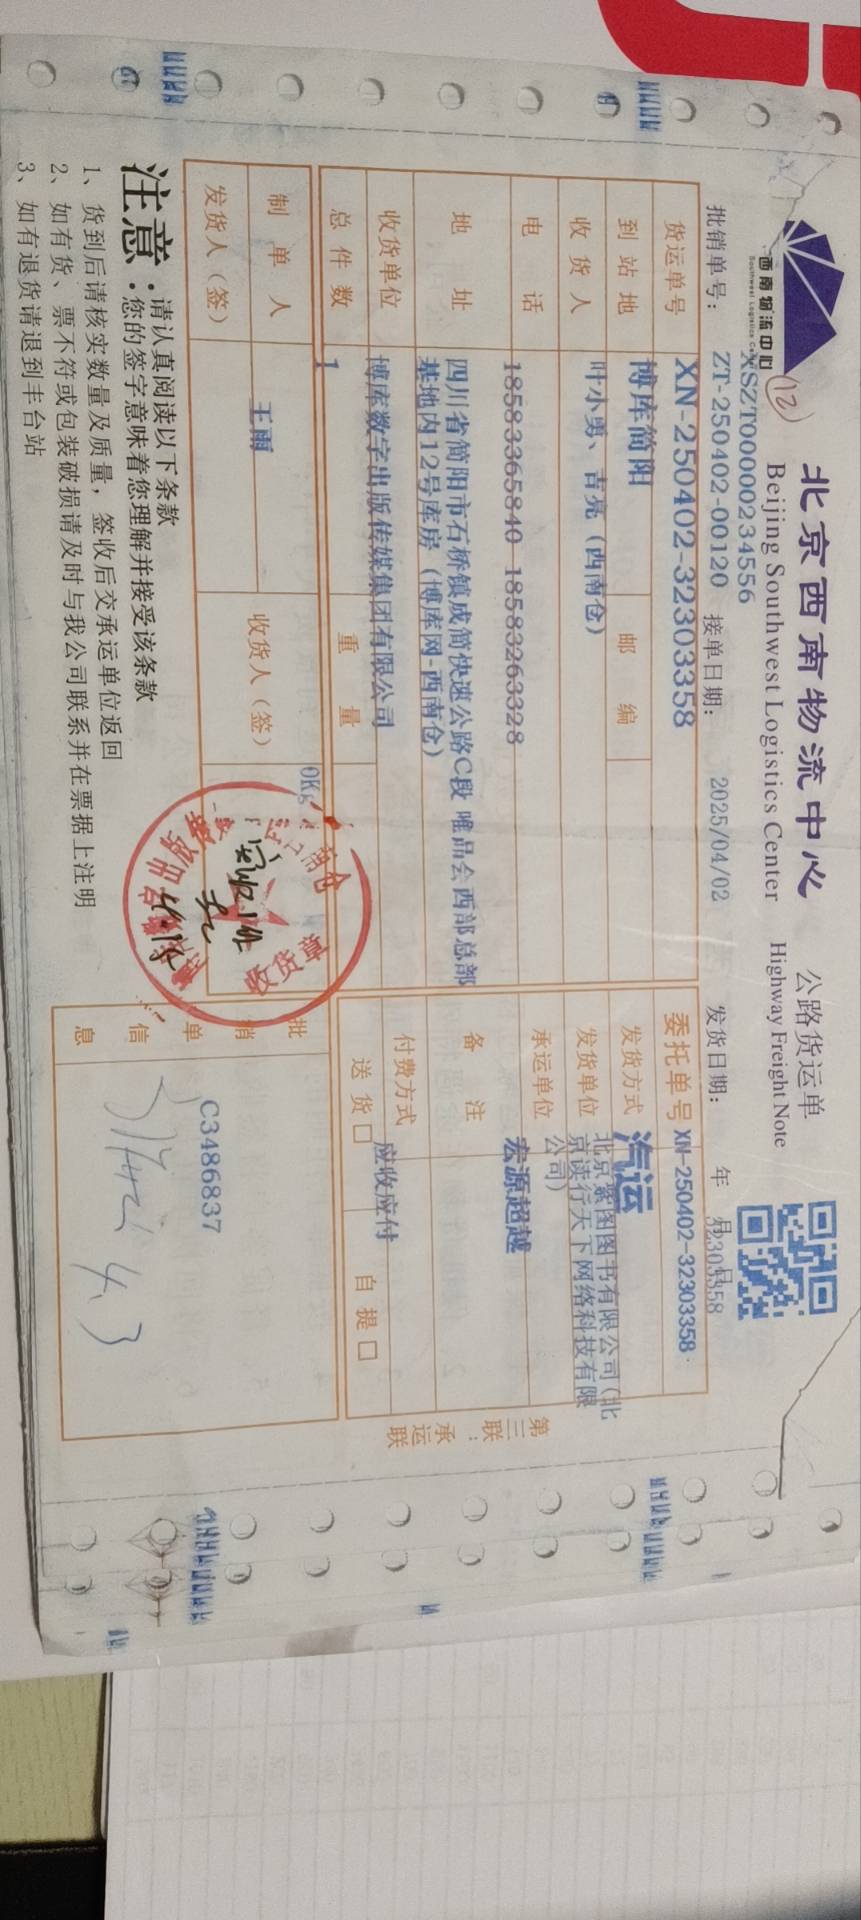 西南物流中心
Southwest Logistics Center
12
北京西南物流中心
Beijing Southwest Logistics Center
公路货运单
Highway Freight Note
XSZT00000234556
批销单号：ZT-250402-00120 接单日期：2025/04/02 发货日期： 年 月 日
32303358
货运单号 XN-250402-32303358 委托单号 XN-250402-32303358
到站地 博库简阳 邮编 发货方式 汽运
收货人 叶小勇、吉亮（西南仓） 发货单位 北京紫图图书有限公司（北京读行天下网络科技有限公司）
电话 18583365840 18583263328 承运单位 宏源超越
地址 四川省简阳市石桥镇成简快速公路C段 唯品会西部总部
基地内12号库房（博库网-西南仓） 备注
收货单位 博库数字出版传媒集团有限公司 付费方式 应收应付
总件数 1 重量 0Kg 送货□ 自提□
制单人 王雨 收货人（签）
发货人（签）
收货章
批销单信息 C3486837
4.3
第三联：承运联
注意：请认真阅读以下条款
您的签字意味着您理解并接受该条款
1、货到后请核实数量及质量，签收后交承运单位返回
2、如有货、票不符或包装破损请及时与我公司联系并在票据上注明
3、如有退货请退到丰台站